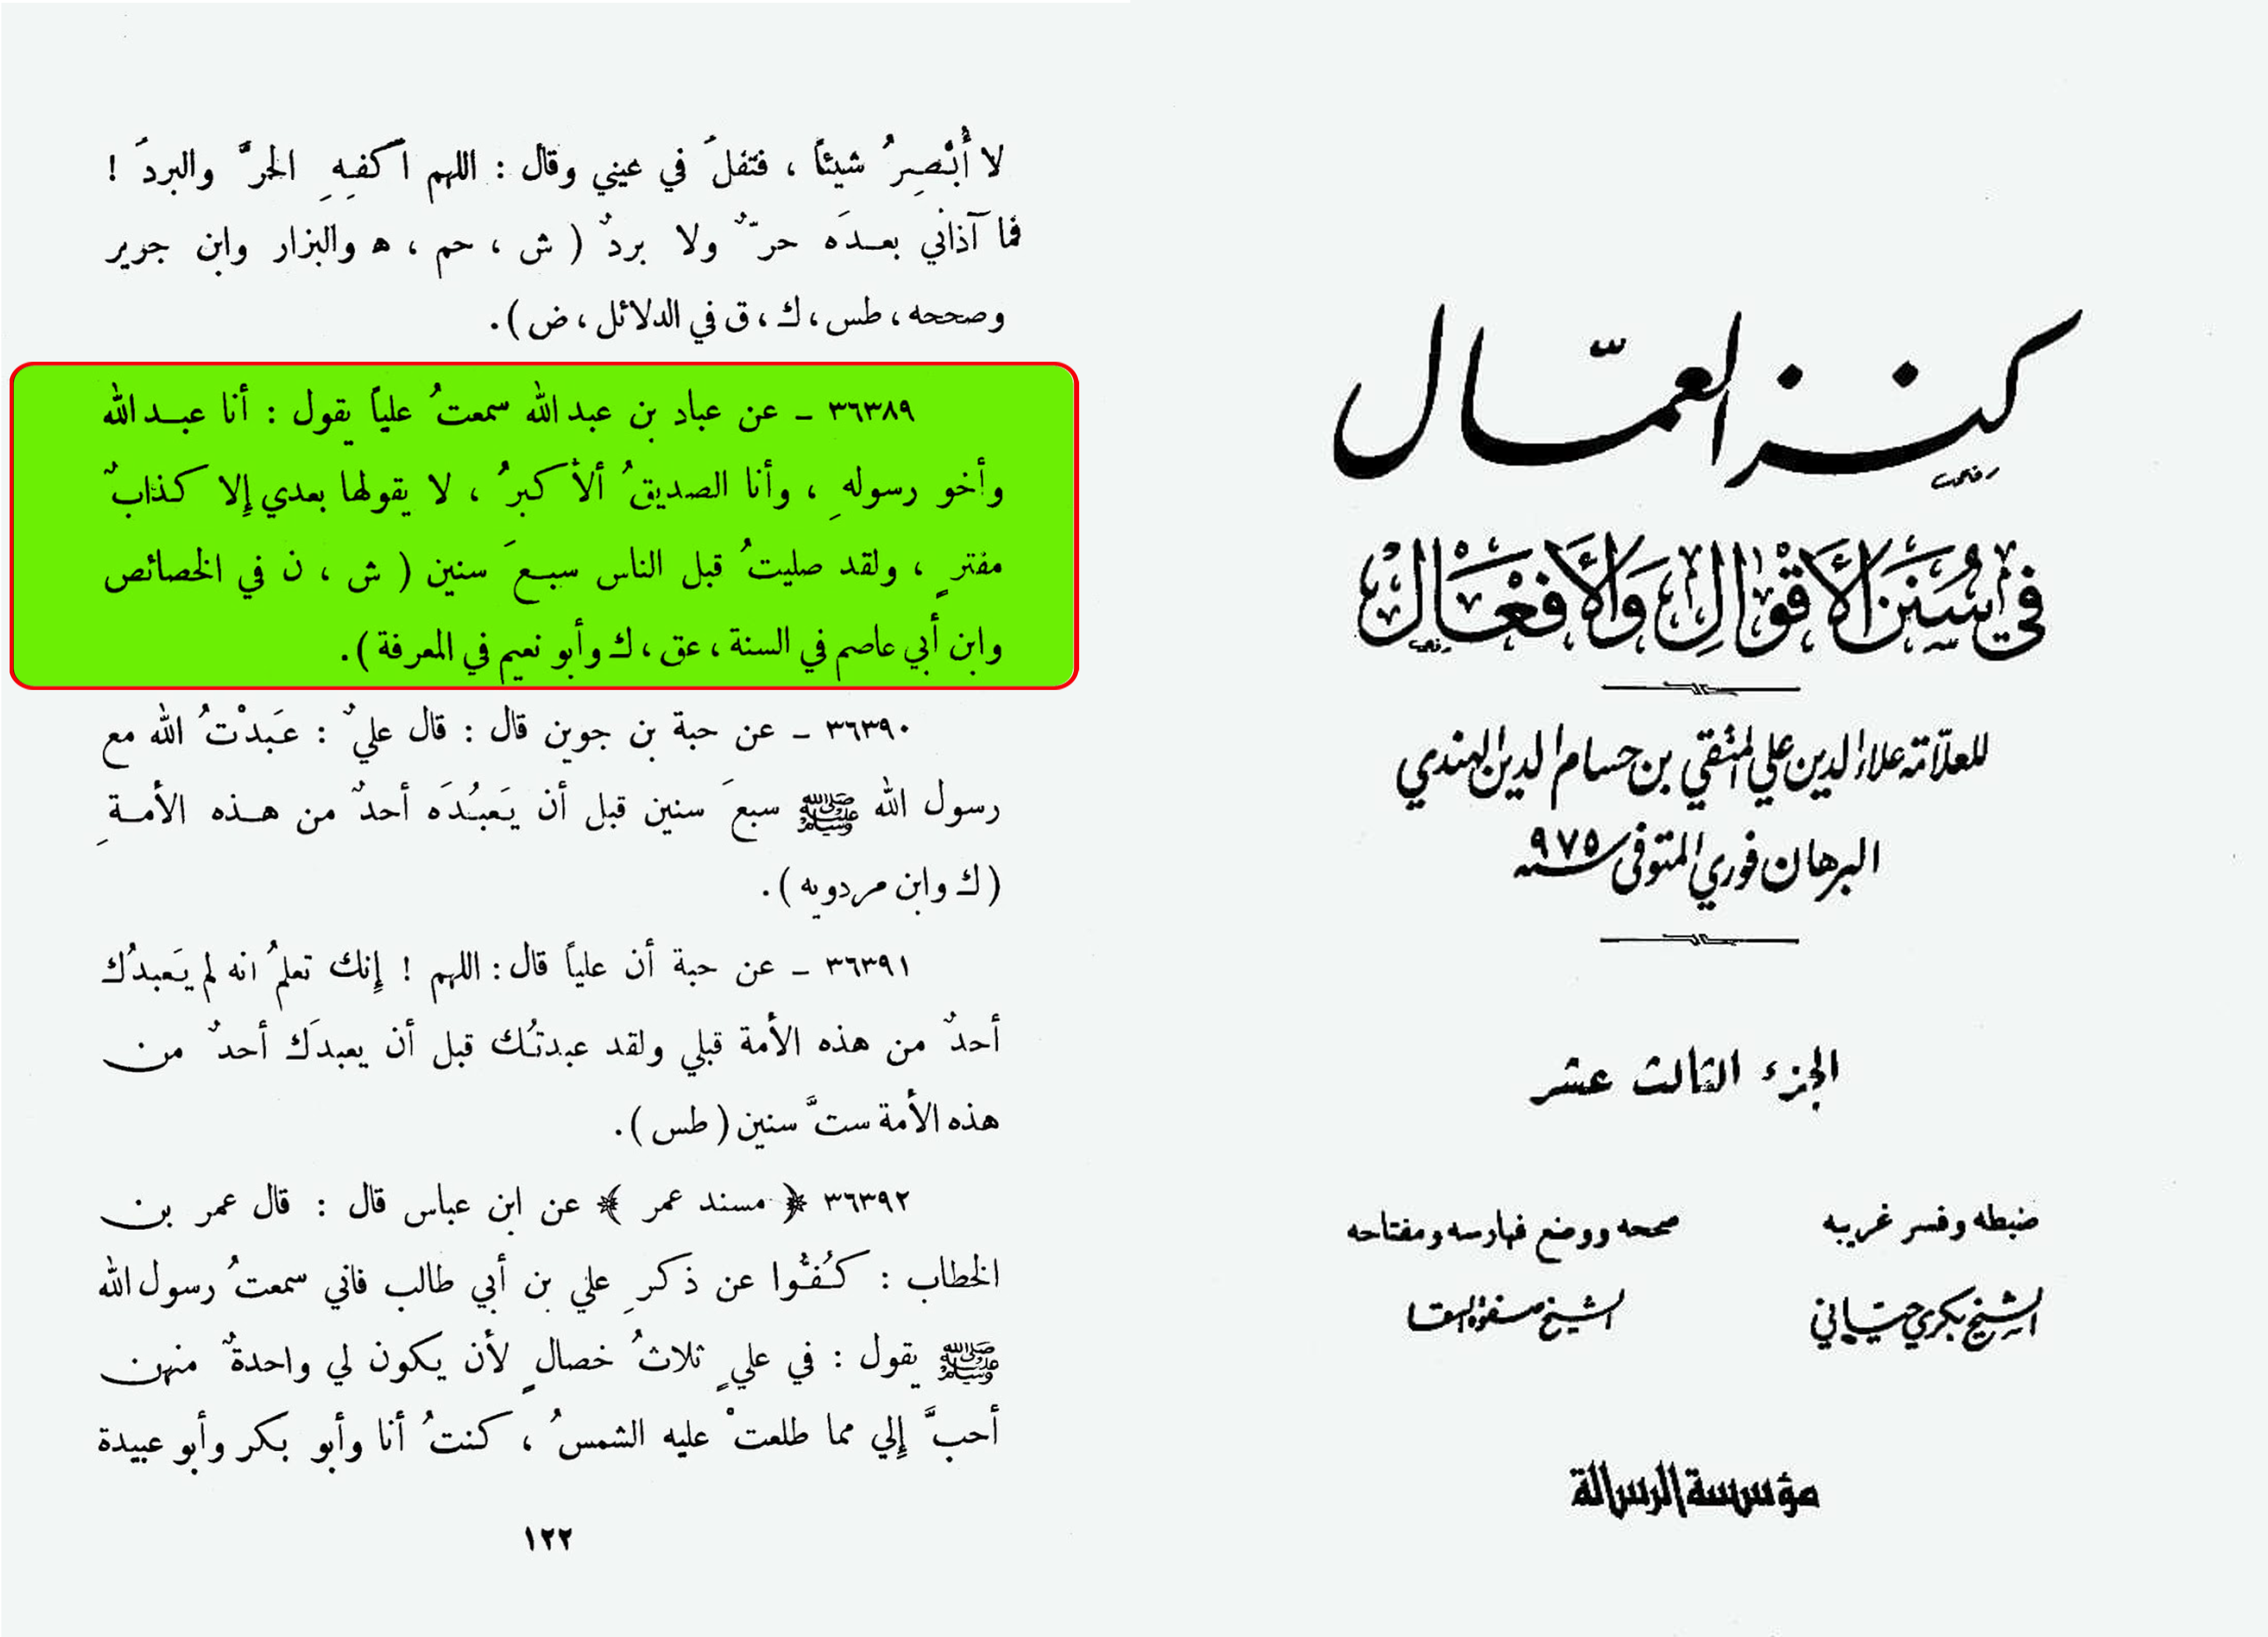 كنز العمّال
في سُنَنِ الأَقْوَالِ وَالأَفْعَالِ
للعلّامة علاء الدين علي المتقي بن حسام الدين الهندي
البرهان فوري المتوفى سنة ٩٧٥
الجزء الثالث عشر
ضبطه وفسر غريبه
الشيخ بكري حيّاني
صححه ووضع فهارسه ومفتاحه
الشيخ صفوة السقا
مؤسسة الرسالة
لا أُبْصِرُ شيئاً ، فتفلَ في عيني وقال : اللهم اكفِهِ الحرَّ والبردَ !
فما آذاني بعدَه حرٌّ ولا بردٌ ( ش ، حم ، ه والبزار وابن جرير
وصححه ، طس ، ك ، ق في الدلائل ، ض ) .
٣٦٣٨٩ - عن عباد بن عبد الله سمعتُ علياً يقول : أنا عبد الله
وأخو رسولهِ ، وأنا الصديقُ ألأكبرُ ، لا يقولها بعدي إلا كذابٌ
مفترٍ ، ولقد صليتُ قبل الناس سبعَ سنين ( ش ، ن في الخصائص
وابن أبي عاصم في السنة ، عق ، ك وأبو نعيم في المعرفة ) .
٣٦٣٩٠ - عن حبة بن جوين قال : قال عليٌ : عَبدْتُ الله مع
رسول الله ﷺ سبعَ سنين قبل أن يَعبُدَه أحدٌ من هذه الأمةِ
( ك وابن مردويه ) .
٣٦٣٩١ - عن حبة أن علياً قال : اللهم ! إنك تعلمُ انه لم يَعبدُك
أحدٌ من هذه الأمة قبلي ولقد عبدتُك قبل أن يعبدَك أحدٌ من
هذه الأمة ستَّ سنين ( طس ) .
٣٦٣٩٢ ﴿ مسند عمر ﴾ عن ابن عباس قال : قال عمر بن
الخطاب : كُفُّوا عن ذكرِ علي بن أبي طالب فاني سمعتُ رسول الله
ﷺ يقول : في عليٍ ثلاثُ خصالٍ لأن يكون لي واحدةٌ منهن
أحبَّ إلي مما طلعتْ عليه الشمسُ ، كنتُ أنا وأبو بكر وأبو عبيدة
١٢٢